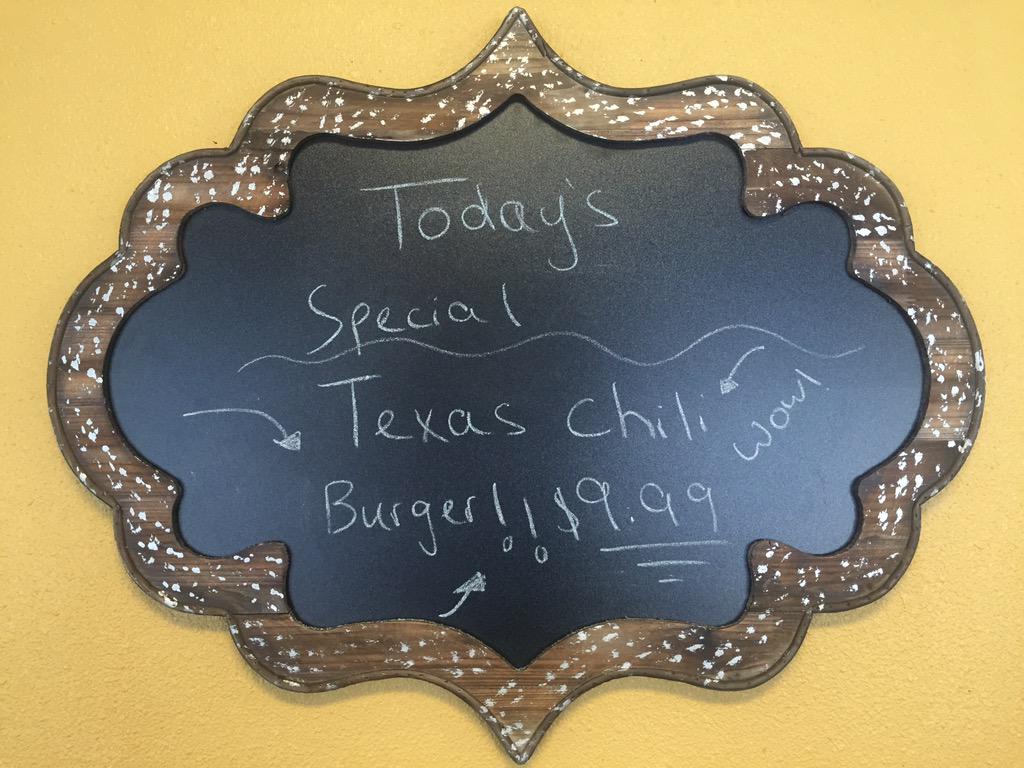 Today's
Special
Texas Chili
wow!
Burger!! $9.99